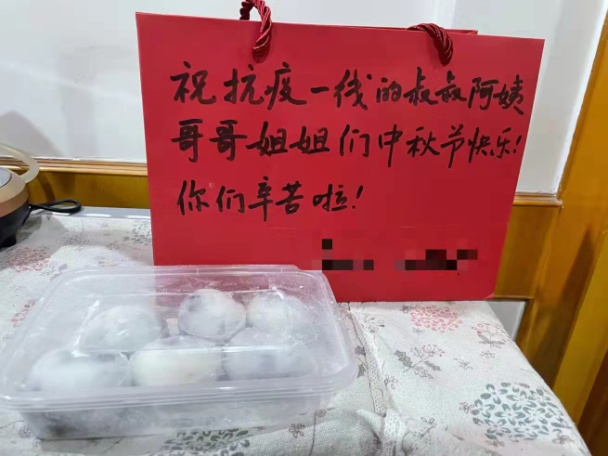 祝抗疫一线的叔叔阿姨
哥哥姐姐们中秋节快乐!
你们辛苦啦!